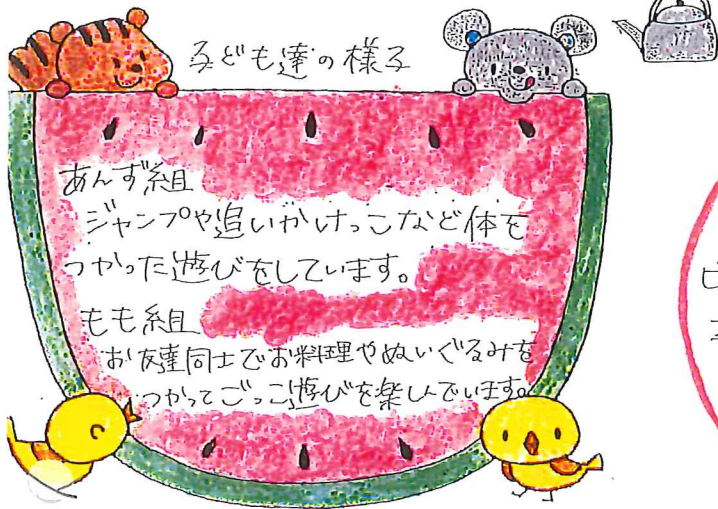 子ども達の様子
あんず組
ジャンプや追いかけっこなど体を
つかった遊びをしています。
もも組
お友達同士でお料理やぬいぐるみを
つかってごっこ遊びを楽しんでいます。